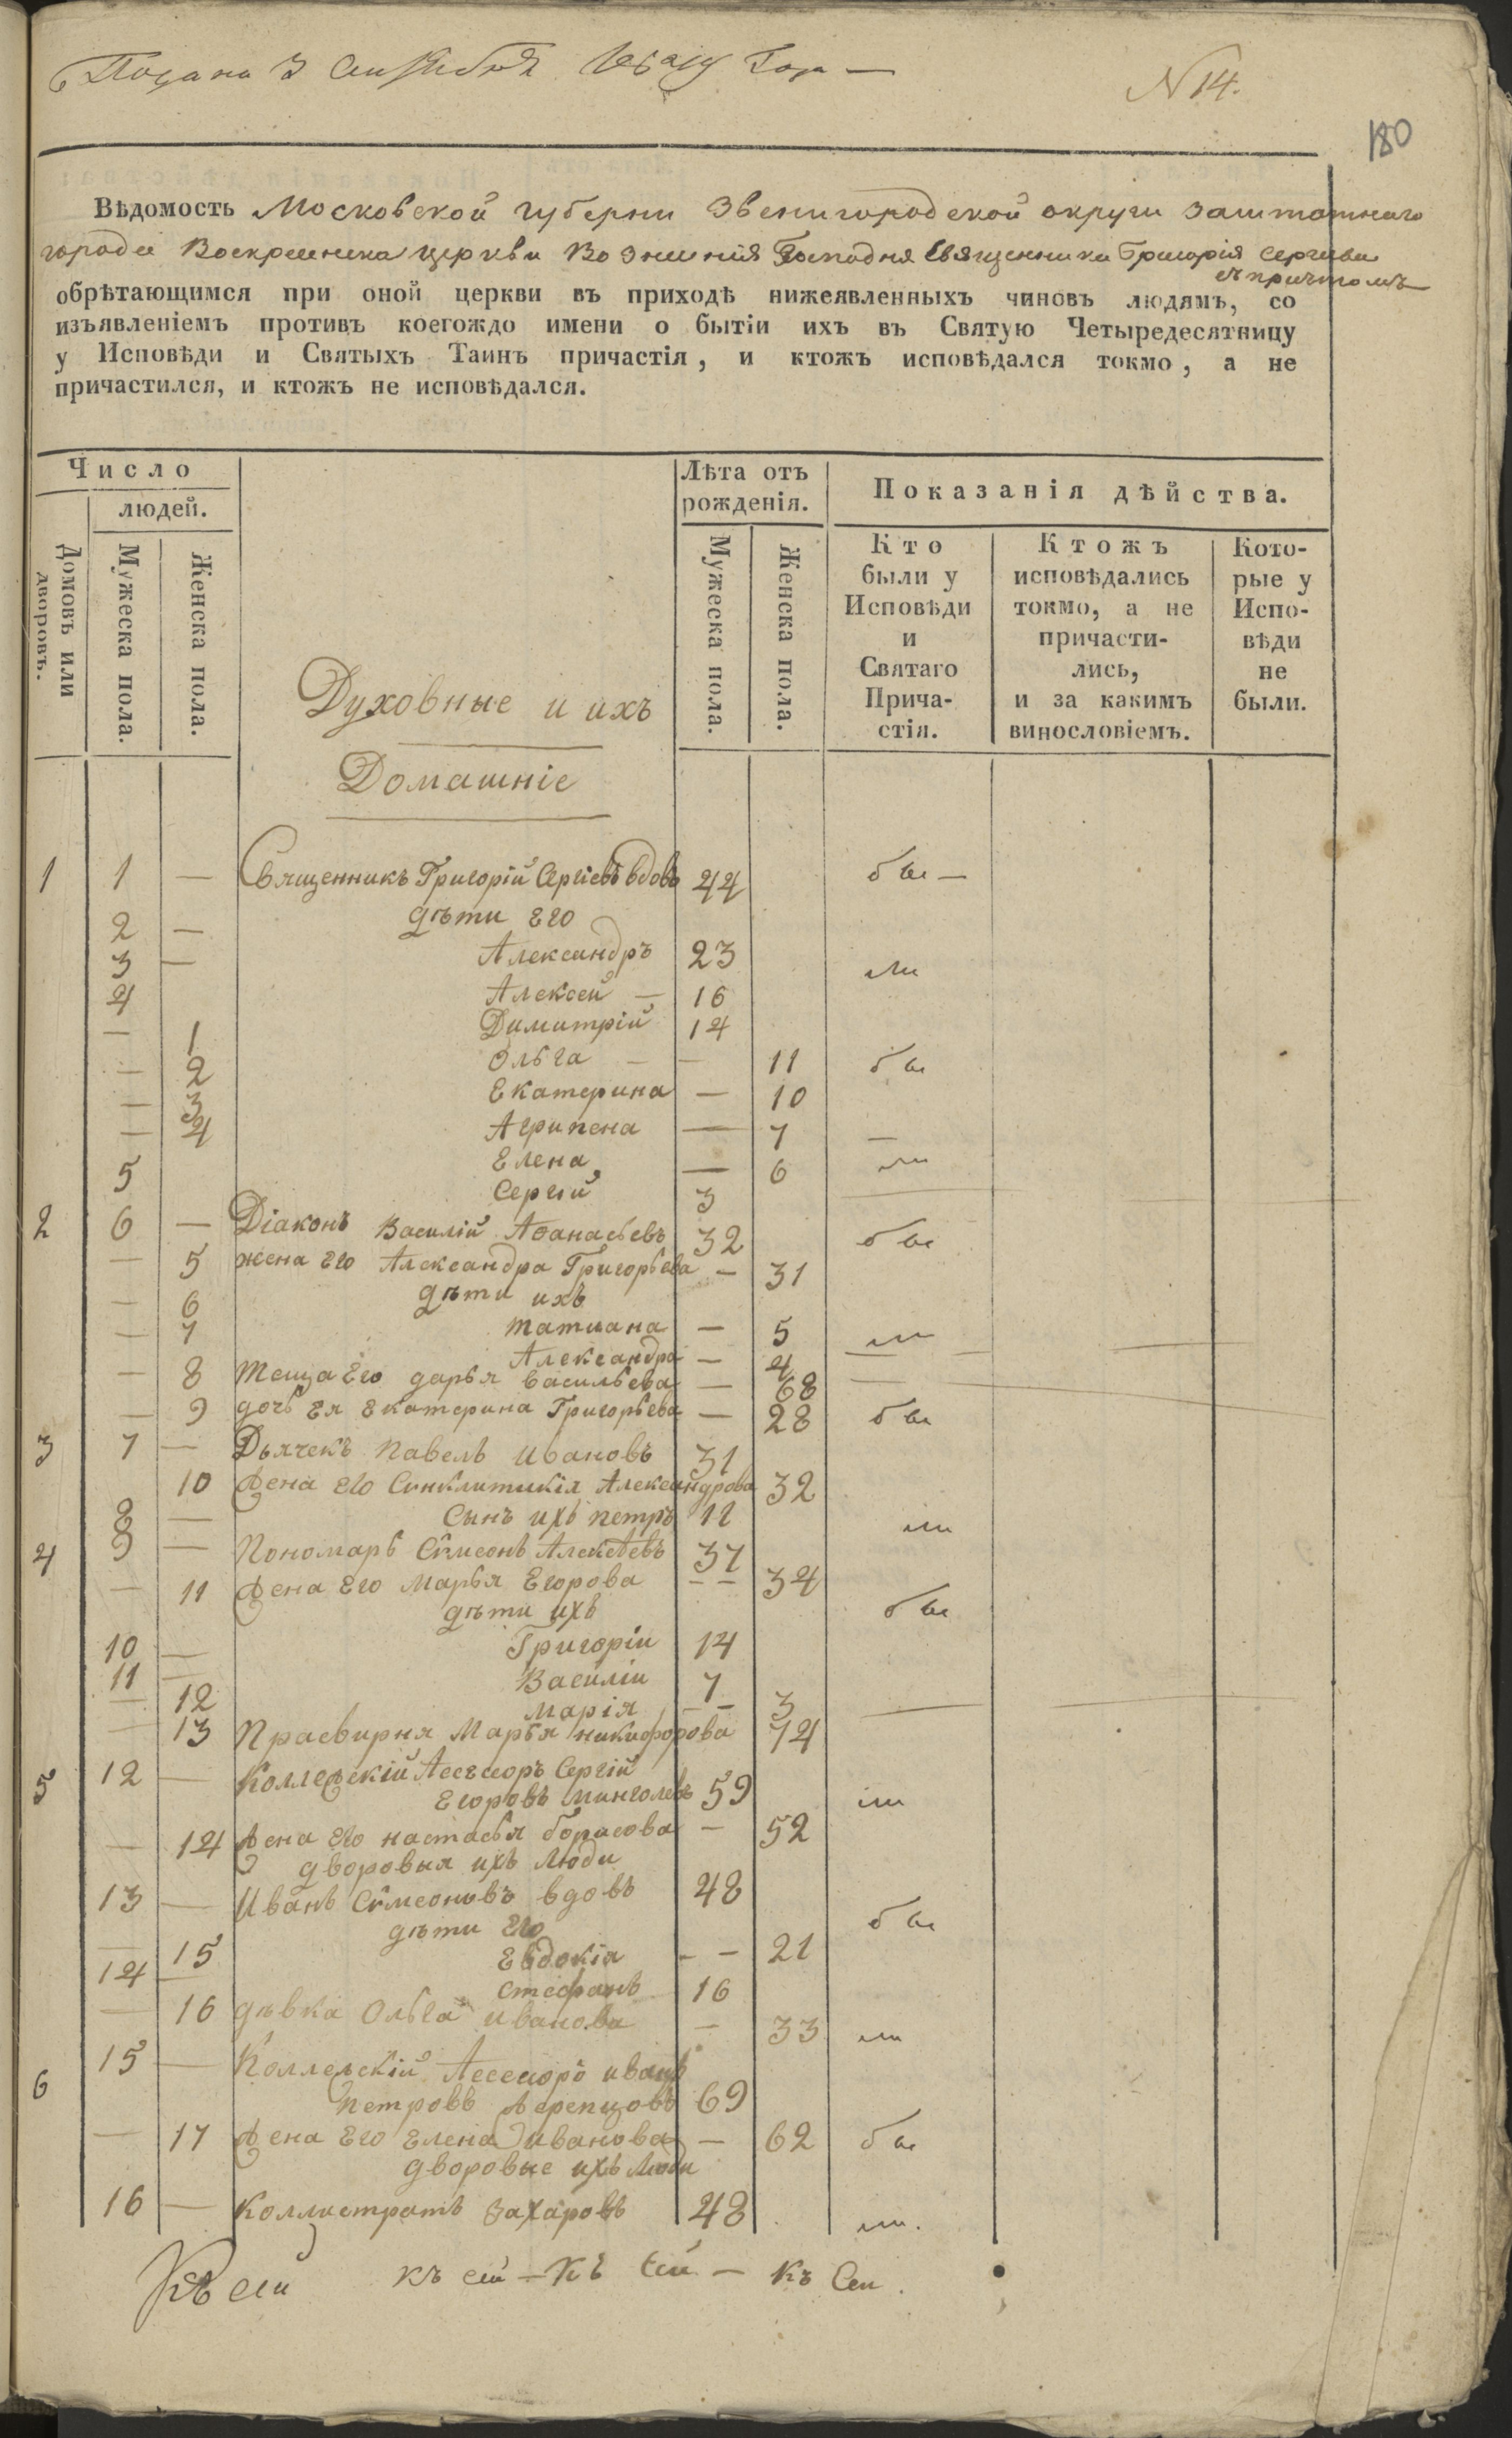 Подана 3 Сентября Года —
N 14.
180
Вѣдомость Московской губерни Звенигородской округи заштатнаго
города Воскресенска церкви Вознесения Господня Священника Григорія Сергиева
съ причтомъ
обрѣтающимся при оной церкви въ приходѣ нижеявленныхъ чиновъ людямъ, со
изъявленіемъ противъ коегождо имени о бытіи ихъ въ Святую Четыредесятницу
у Исповѣди и Святыхъ Таинъ причастія, и ктожъ исповѣдался токмо, а не
причастился, и ктожъ не исповѣдался.
Число
людей.
Домовъ или дворовъ.
Мужеска пола.
Женска пола.
Духовные и ихъ
Домашніе
Лѣта отъ
рожденія.
Мужеска пола.
Женска пола.
Показанія дѣйства.
Кто
были у
Исповѣди
и
Святаго
Прича-
стія.
Ктожъ
исповѣдались
токмо, а не
причасти-
лись,
и за какимъ
винословіемъ.
Кото-
рые у
Испо-
вѣди
не
были.
1 1 — Священникъ Григорій Сергіевъ вдовъ 44 бы —
дѣти его
2 — Александръ 23 ли
3 — Алексей — 16
4 Димитрій 14
— 1 Ольга — — 11 бы
— 2 Екатерина — 10
— 3 Агрипена — 7 —
— 4 Елена — 6 ли
5 Сергій 3
2 6 — Діаконъ Василій Аѳанасьевъ 32 бы
— 5 жена его Александра Григорьева — 31
дѣти ихъ
— 6 Татиана — 5 ли
— 7 Александра — 4
— 8 Теща Его дарья васильева — 68
— 9 дочь Ея Екатерина Григорьева — 28 бы
3 7 — Дьячекъ Павелъ Ивановъ 31
10 Жена его Синклитикія Александрова 32
8 — Сынъ ихъ петръ 11 ли
4 9 — Пономарь Сѵмеонъ Алексѣевъ 37
— 11 Жена Его Марья Егорова — — 34
дѣти ихъ бы
10 — Григоріи 14
11 — Василіи 7
— 12 Марія — — 3
— 13 Прасвирня Марья никифорова 74
5 12 — Коллежскій Асессоръ Сергій
Егоровъ 59 ли
— 14 Жена его настасья борисова — 52
дворовыя ихъ люди
13 — Иванъ Сѵмеоновъ вдовъ 48
дѣти Его бы
— 15 Евдокіа — — 21
14 — Стефанъ 16
— 16 дѣвка Ольга иванова — 33 ли
6 15 — Коллежскій Асессоръ иванъ
петровъ Жеребцовъ 69
— 17 Жена Его Елена Иванова — 62 бы
дворовые ихъ люди
16 — Коллистратъ Захаровъ 48 ли.
Къ сей къ сей — Къ сей — Къ Сей.